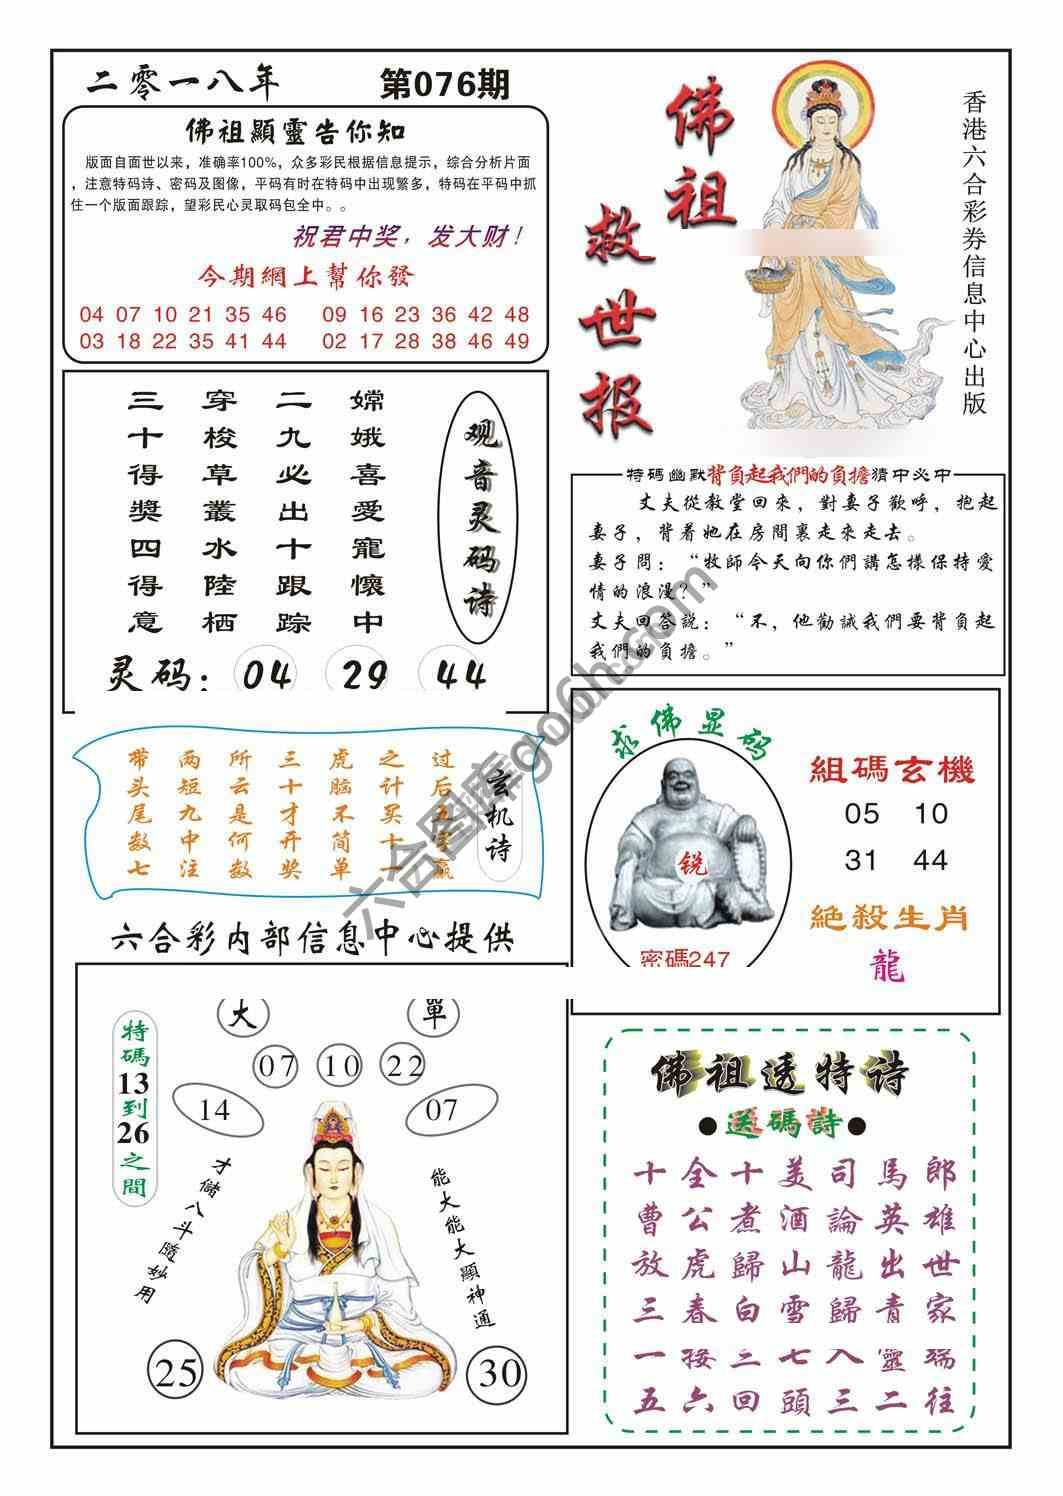 二零一八年 第076期
佛祖顯靈告你知
版面自面世以来，准确率100%，众多彩民根据信息提示，综合分析片面
，注意特码诗、密码及图像，平码有时在特码中出现繁多，特码在平码中抓
住一个版面跟踪，望彩民心灵取码包全中。。
祝君中奖，发大财！
今期網上幫你發
04 07 10 21 35 46 09 16 23 36 42 48
03 18 22 35 41 44 02 17 28 38 46 49
佛祖救世报
香港六合彩券信息中心出版
观音灵码诗
嫦娥喜愛寵懷中
二九必出十跟踪
穿梭草叢水陸栖
三十得獎四得意
灵码：04 29 44
特碼幽默背負起我們的負擔猜中必中
丈夫從教堂回來，對妻子歡呼，抱起
妻子，背着她在房間裏走來走去。
妻子問：“牧師今天向你們講怎樣保持愛
情的浪漫？”
丈夫回答説：“不，他勸誡我們要背負起
我們的負擔。”
玄机诗
过后五字赢
之计买十一
虎脑不简单
三十才开奖
所云是何数
两短九中注
带头尾数七
六合彩内部信息中心提供
求佛显码
锐
密碼247
組碼玄機
05 10
31 44
絶殺生肖
龍
大 單
07 10 22
14 07
特碼13到26之間
才儲八斗隨妙用
能大能大顯神通
25 30
佛祖透特诗
●送碼詩●
十全十美司馬郎
曹公煮酒論英雄
放虎歸山龍出世
三春白雪歸青家
一接二七入靈端
五六回頭三二往
六合图库go6h.com